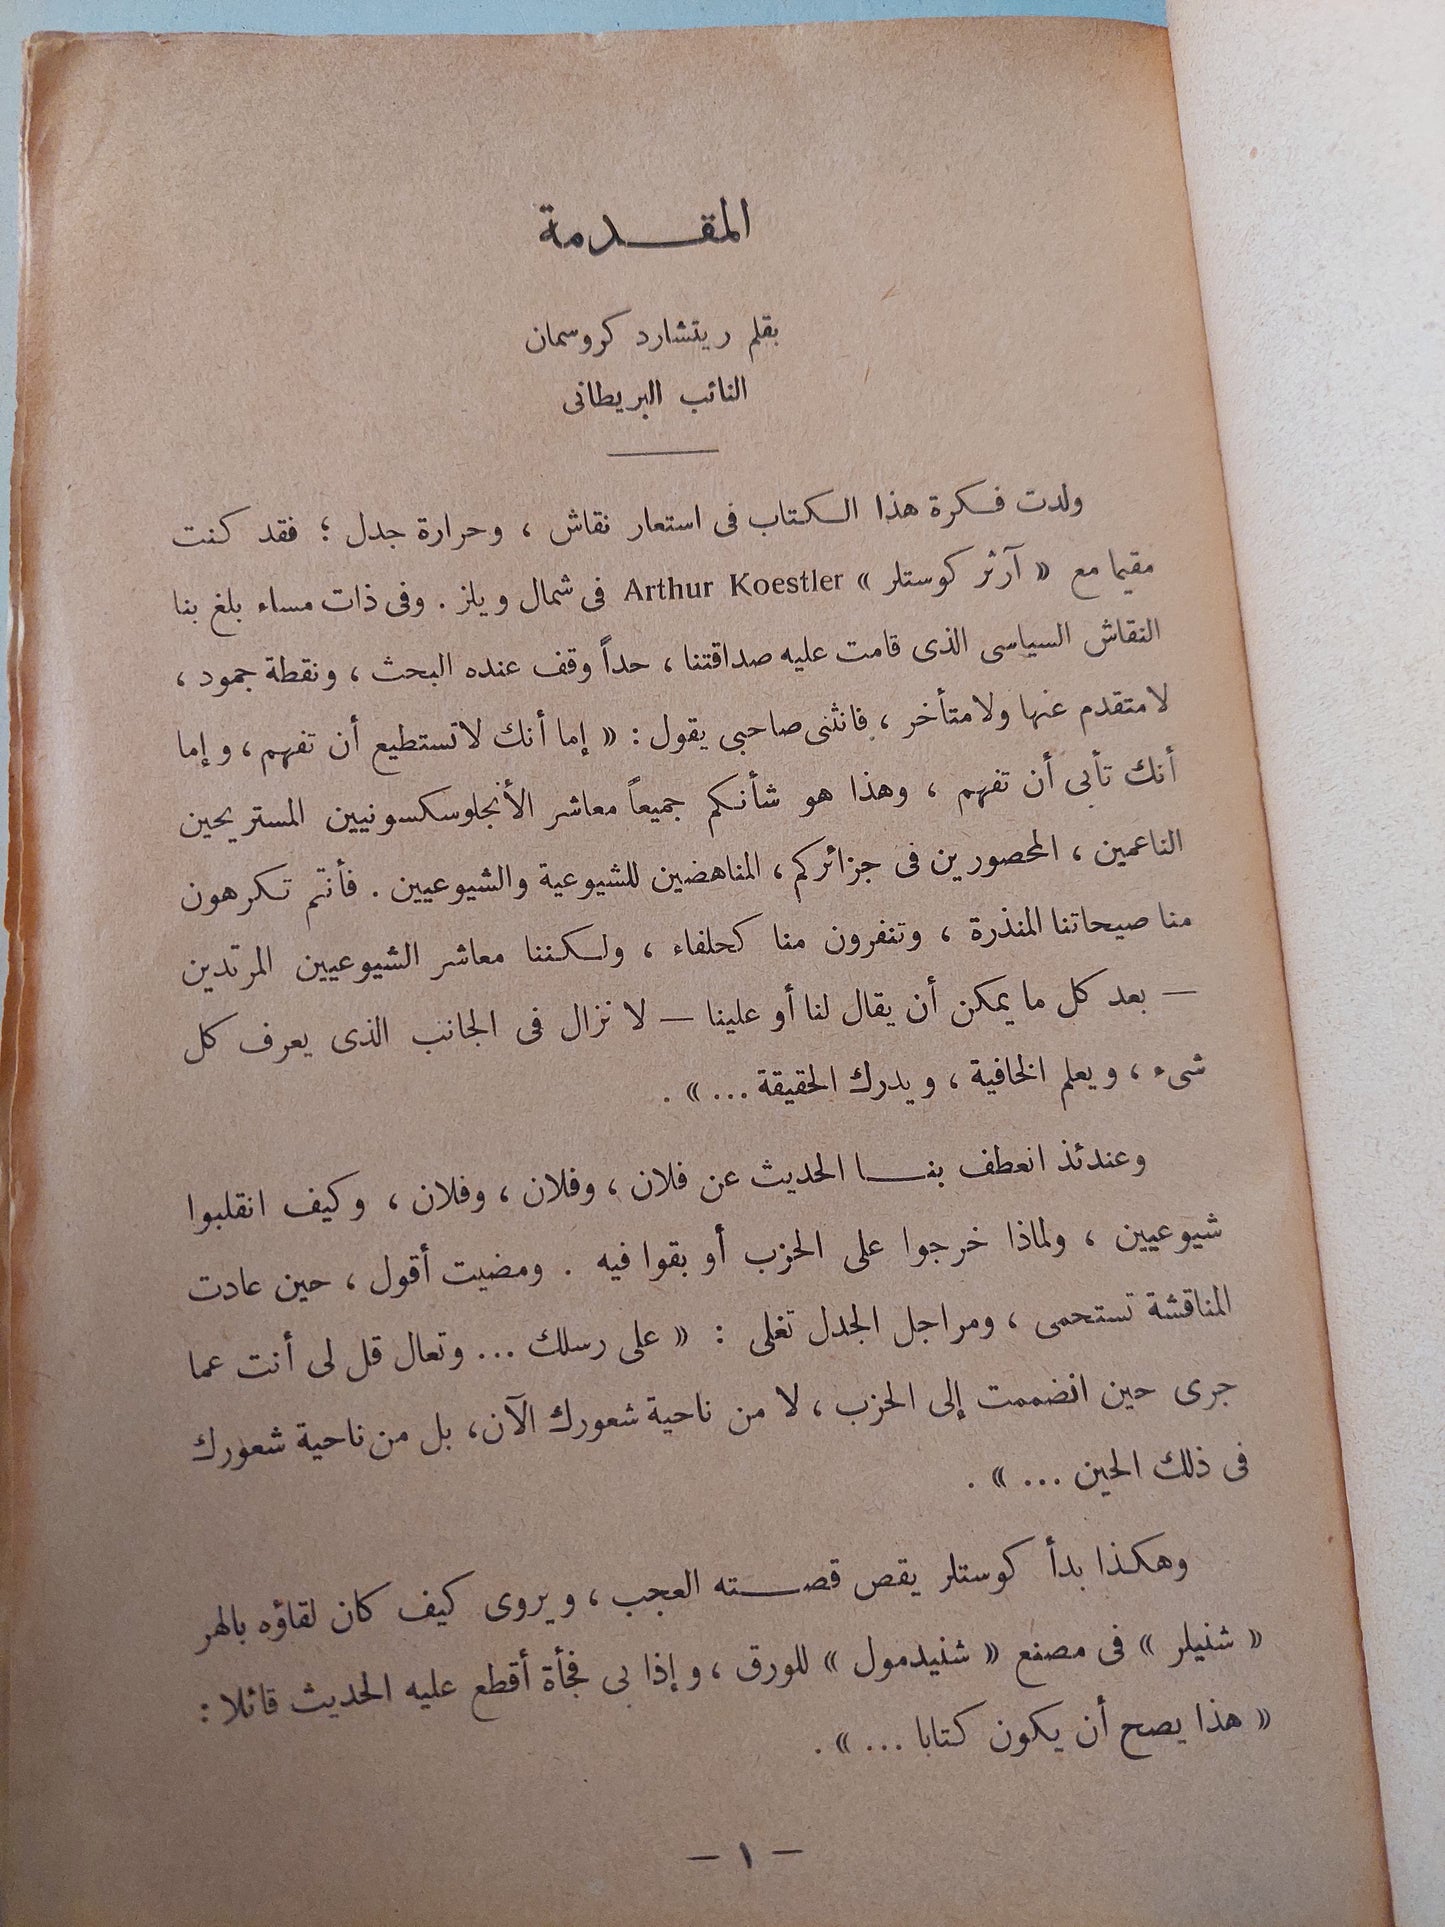 المقدمة
بقلم ريتشارد كروسمان
النائب البريطانى
ولدت فكرة هذا الكتاب فى استعار نقاش ، وحرارة جدل ؛ فقد كنت
مقيما مع « آرثر كوستلر » Arthur Koestler فى شمال ويلز . وفى ذات مساء بلغ بنا
النقاش السياسى الذى قامت عليه صداقتنا ، حداً وقف عنده البحث ، ونقطة جمود ،
لا متقدم عنها ولا متأخر ، فانثنى صاحبى يقول : « إما أنك لا تستطيع أن تفهم ، وإما
أنك تأبى أن تفهم ، وهذا هو شأنكم جميعاً معاشر الأنجلوسكسونيين المستريحين
الناعمين ، المحصورين فى جزائركم ، المناهضين للشيوعية والشيوعيين . فأنتم تكرهون
منا صيحاتنا المنذرة ، وتنفرون منا كحلفاء ، ولكننا معاشر الشيوعيين المرتدين
— بعد كل ما يمكن أن يقال لنا أو علينا — لا نزال فى الجانب الذى يعرف كل
شىء ، ويعلم الخافية ، ويدرك الحقيقة ... » .
وعندئذ انعطف بنا الحديث عن فلان ، وفلان ، وفلان ، وكيف انقلبوا
شيوعيين ، ولماذا خرجوا على الحزب أو بقوا فيه . ومضيت أقول ، حين عادت
المناقشة تستحمى ، ومراجل الجدل تغلى : « على رسلك ... وتعال قل لى أنت عما
جرى حين انضممت إلى الحزب ، لا من ناحية شعورك الآن ، بل من ناحية شعورك
فى ذلك الحين ... » .
وهكذا بدأ كوستلر يقص قصته العجب ، ويروى كيف كان لقاؤه بالهر
« شنيلر » فى مصنع « شنيدمول » للورق ، وإذا بى فجأة أقطع عليه الحديث قائلا :
« هذا يصح أن يكون كتابا ... » .
— ١ —